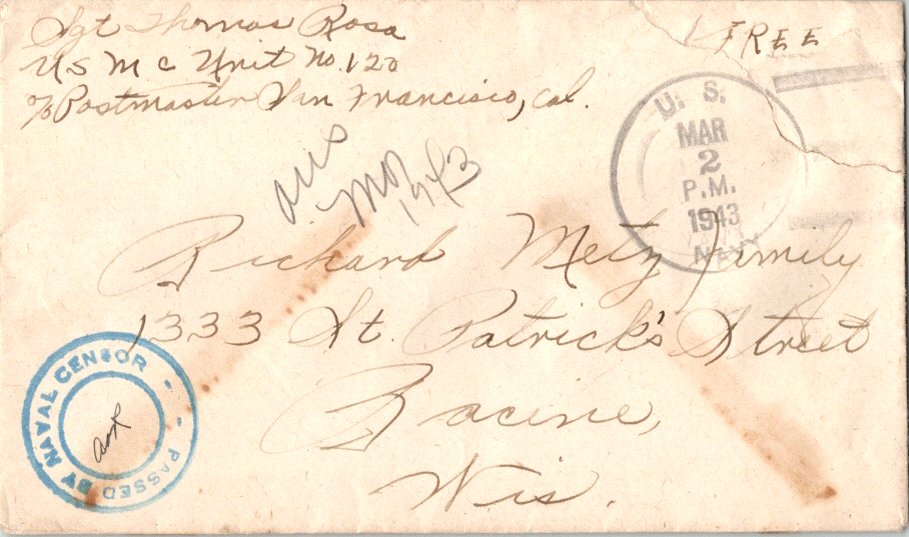 Sgt Thomas Rosa
U S M C Unit No. 120
c/o Postmaster San Francisco, Cal.
FREE
U. S.
MAR
2
P.M.
1943
NAVY
ans
Mar 1943
Richard Metz Family
1333 St. Patrick's Street
Racine,
Wis.
PASSED BY NAVAL CENSOR